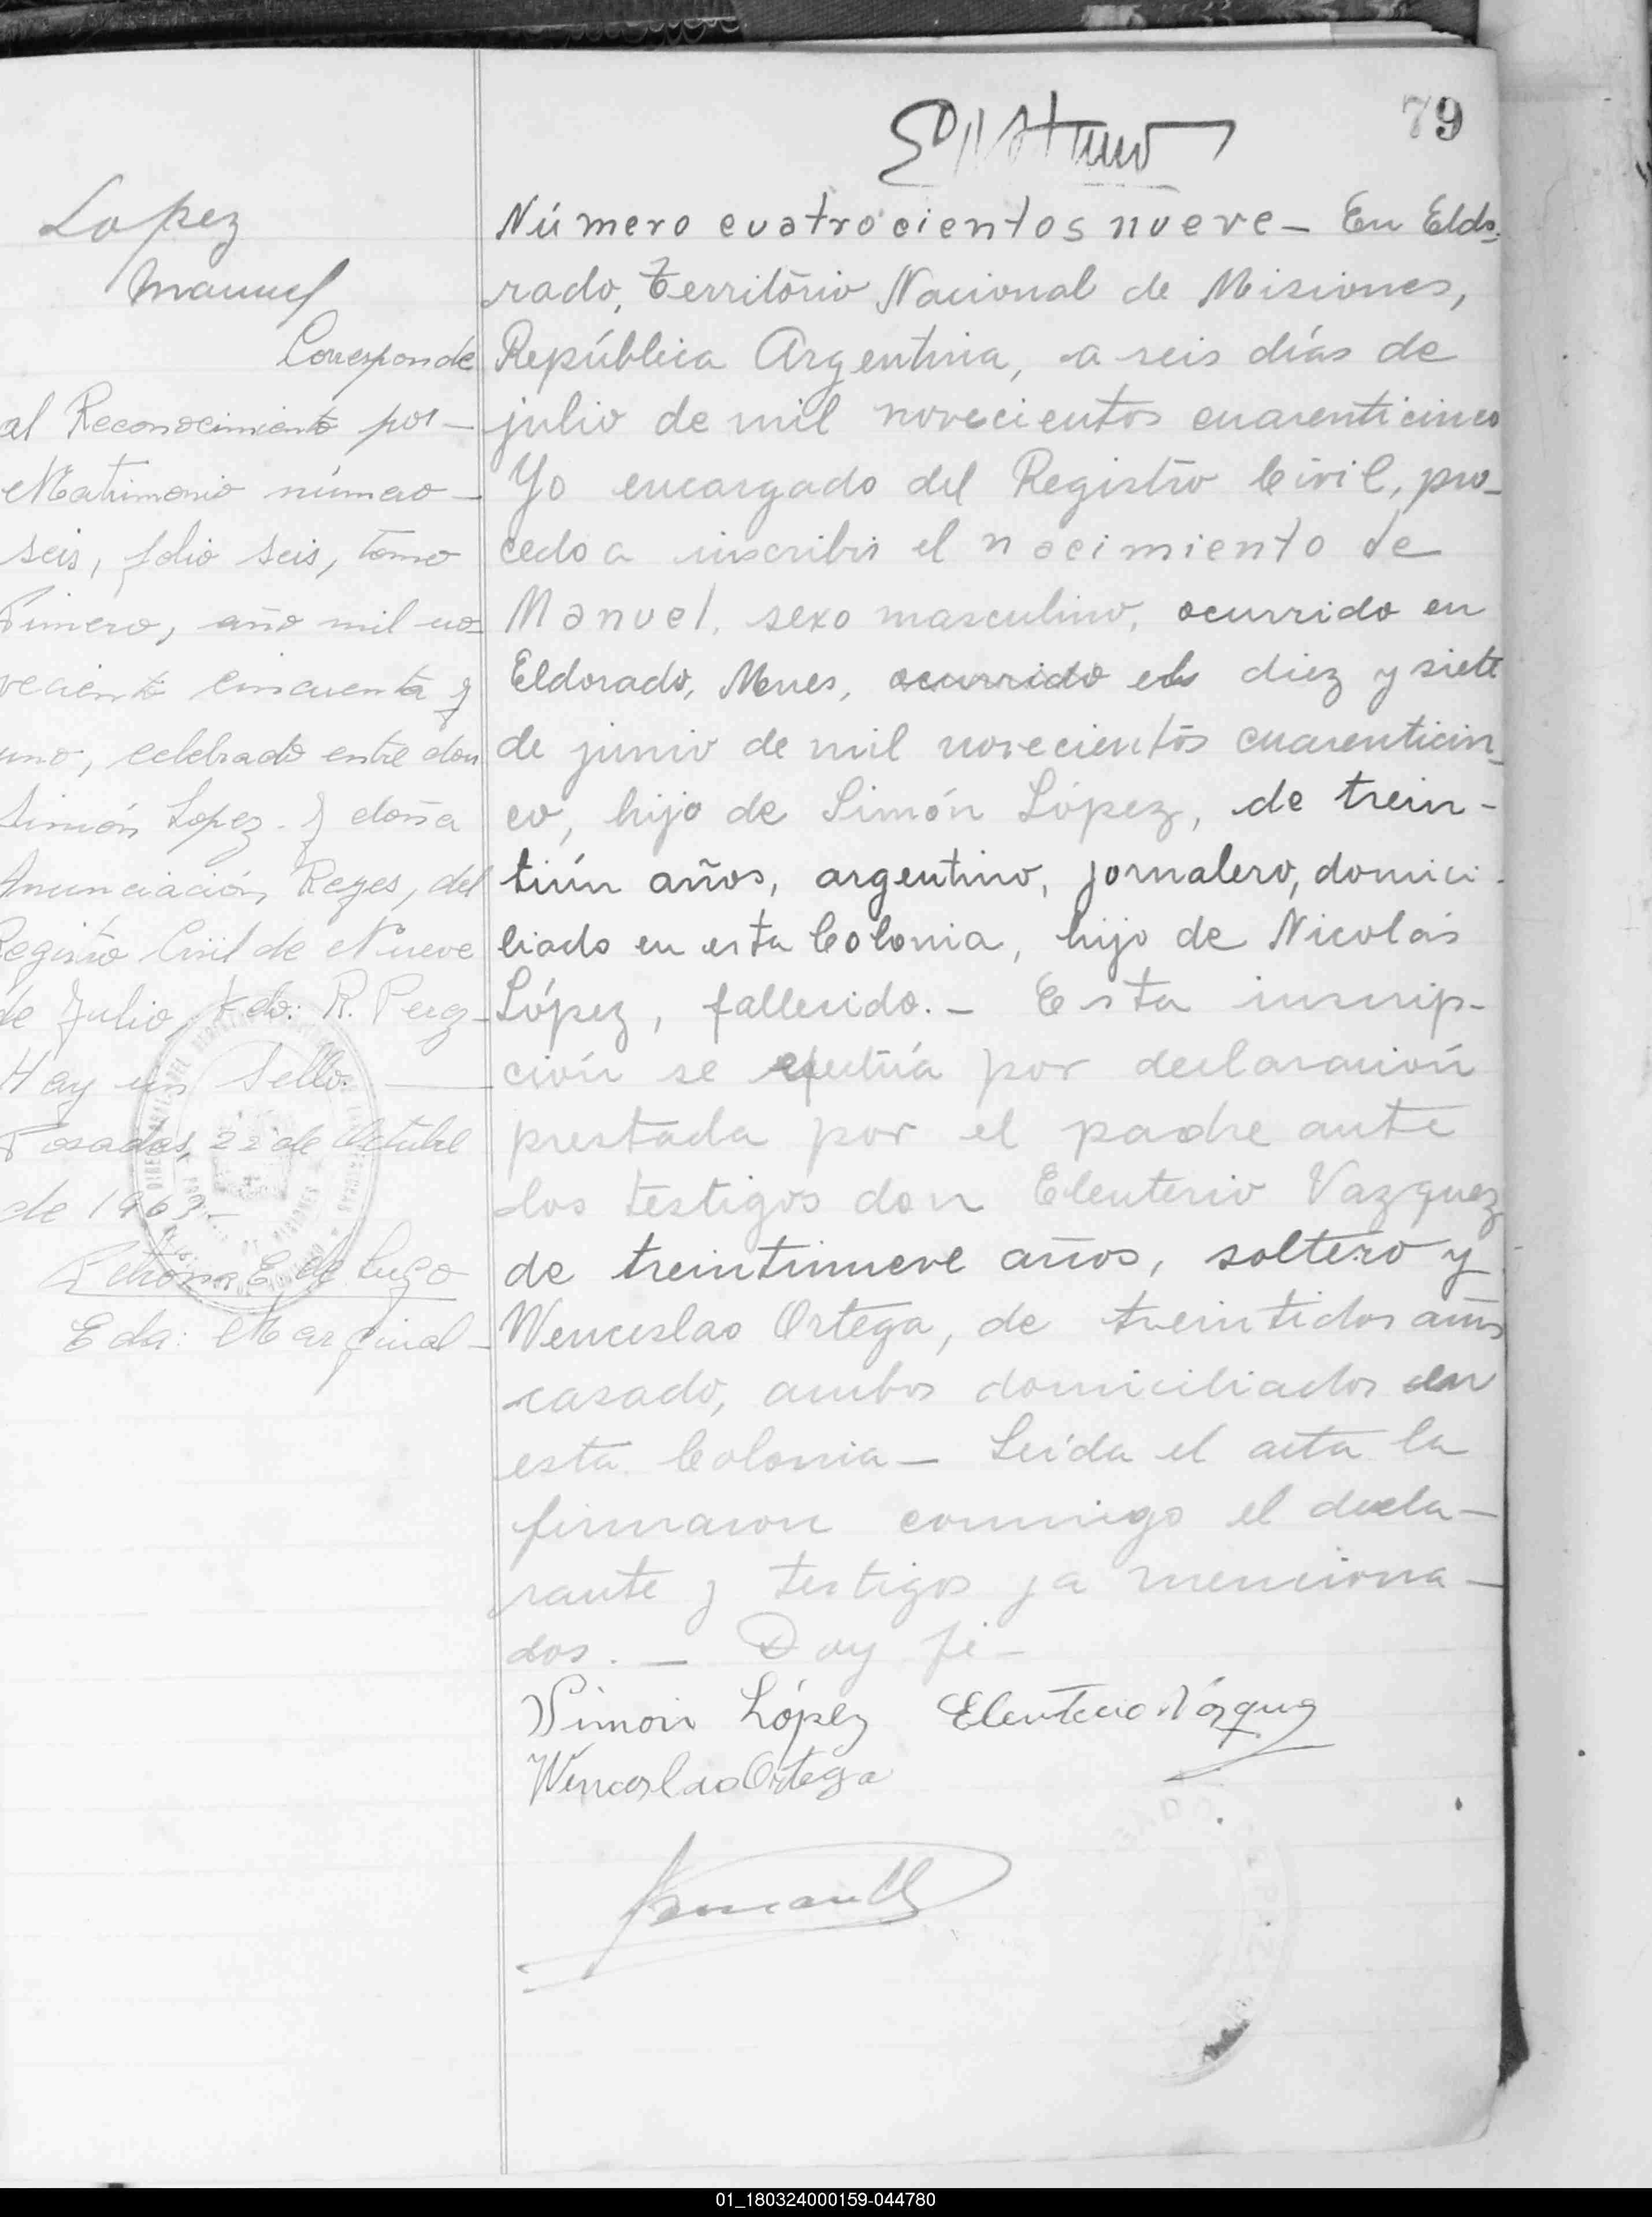 79
Lopez
Manuel
Corresponde
al Reconocimiento por -
Matrimonio número -
seis, folio seis, tomo
Primero, año mil no=
veciento cincuenta y
uno, celebrado entre don
Simón Lopez y doña
Anunciación Reyes, del
Registro Civil de Nueve
de Julio, Fdo: R. Perez -
Hay un Sello. ——
Posadas, 22 de Octubre
de 1963 -
Petrona E. de Lugo
Eda: Marginal -
Número cuatrocientos nueve - En Eldo-
rado, Territorio Nacional de Misiones,
República Argentina, a seis días de
julio de mil novecientos cuarenticinco
Yo encargado del Registro Civil, pro-
cedo a inscribir el nacimiento de
Manuel, sexo masculino, ocurrido en
Eldorado, Mnes, ocurrido el diez y siete
de junio de mil novecientos cuarenticin-
co, hijo de Simón López, de trein-
tiún años, argentino, jornalero, domici-
liado en esta Colonia, hijo de Nicolás
López, fallecido. - Esta inscrip-
ción se efectúa por declaración
prestada por el padre ante
los testigos don Eleuterio Vazquez
de treintinueve años, soltero y
Wenceslao Ortega, de treintidos años
casado, ambos domiciliados en
esta Colonia - Leída el acta la
firmaron conmigo el decla-
rante y testigos ya menciona-
dos. - Doy fé -
Simón López Eleuterio Vázquez
Wenceslao Ortega
01_180324000159-044780